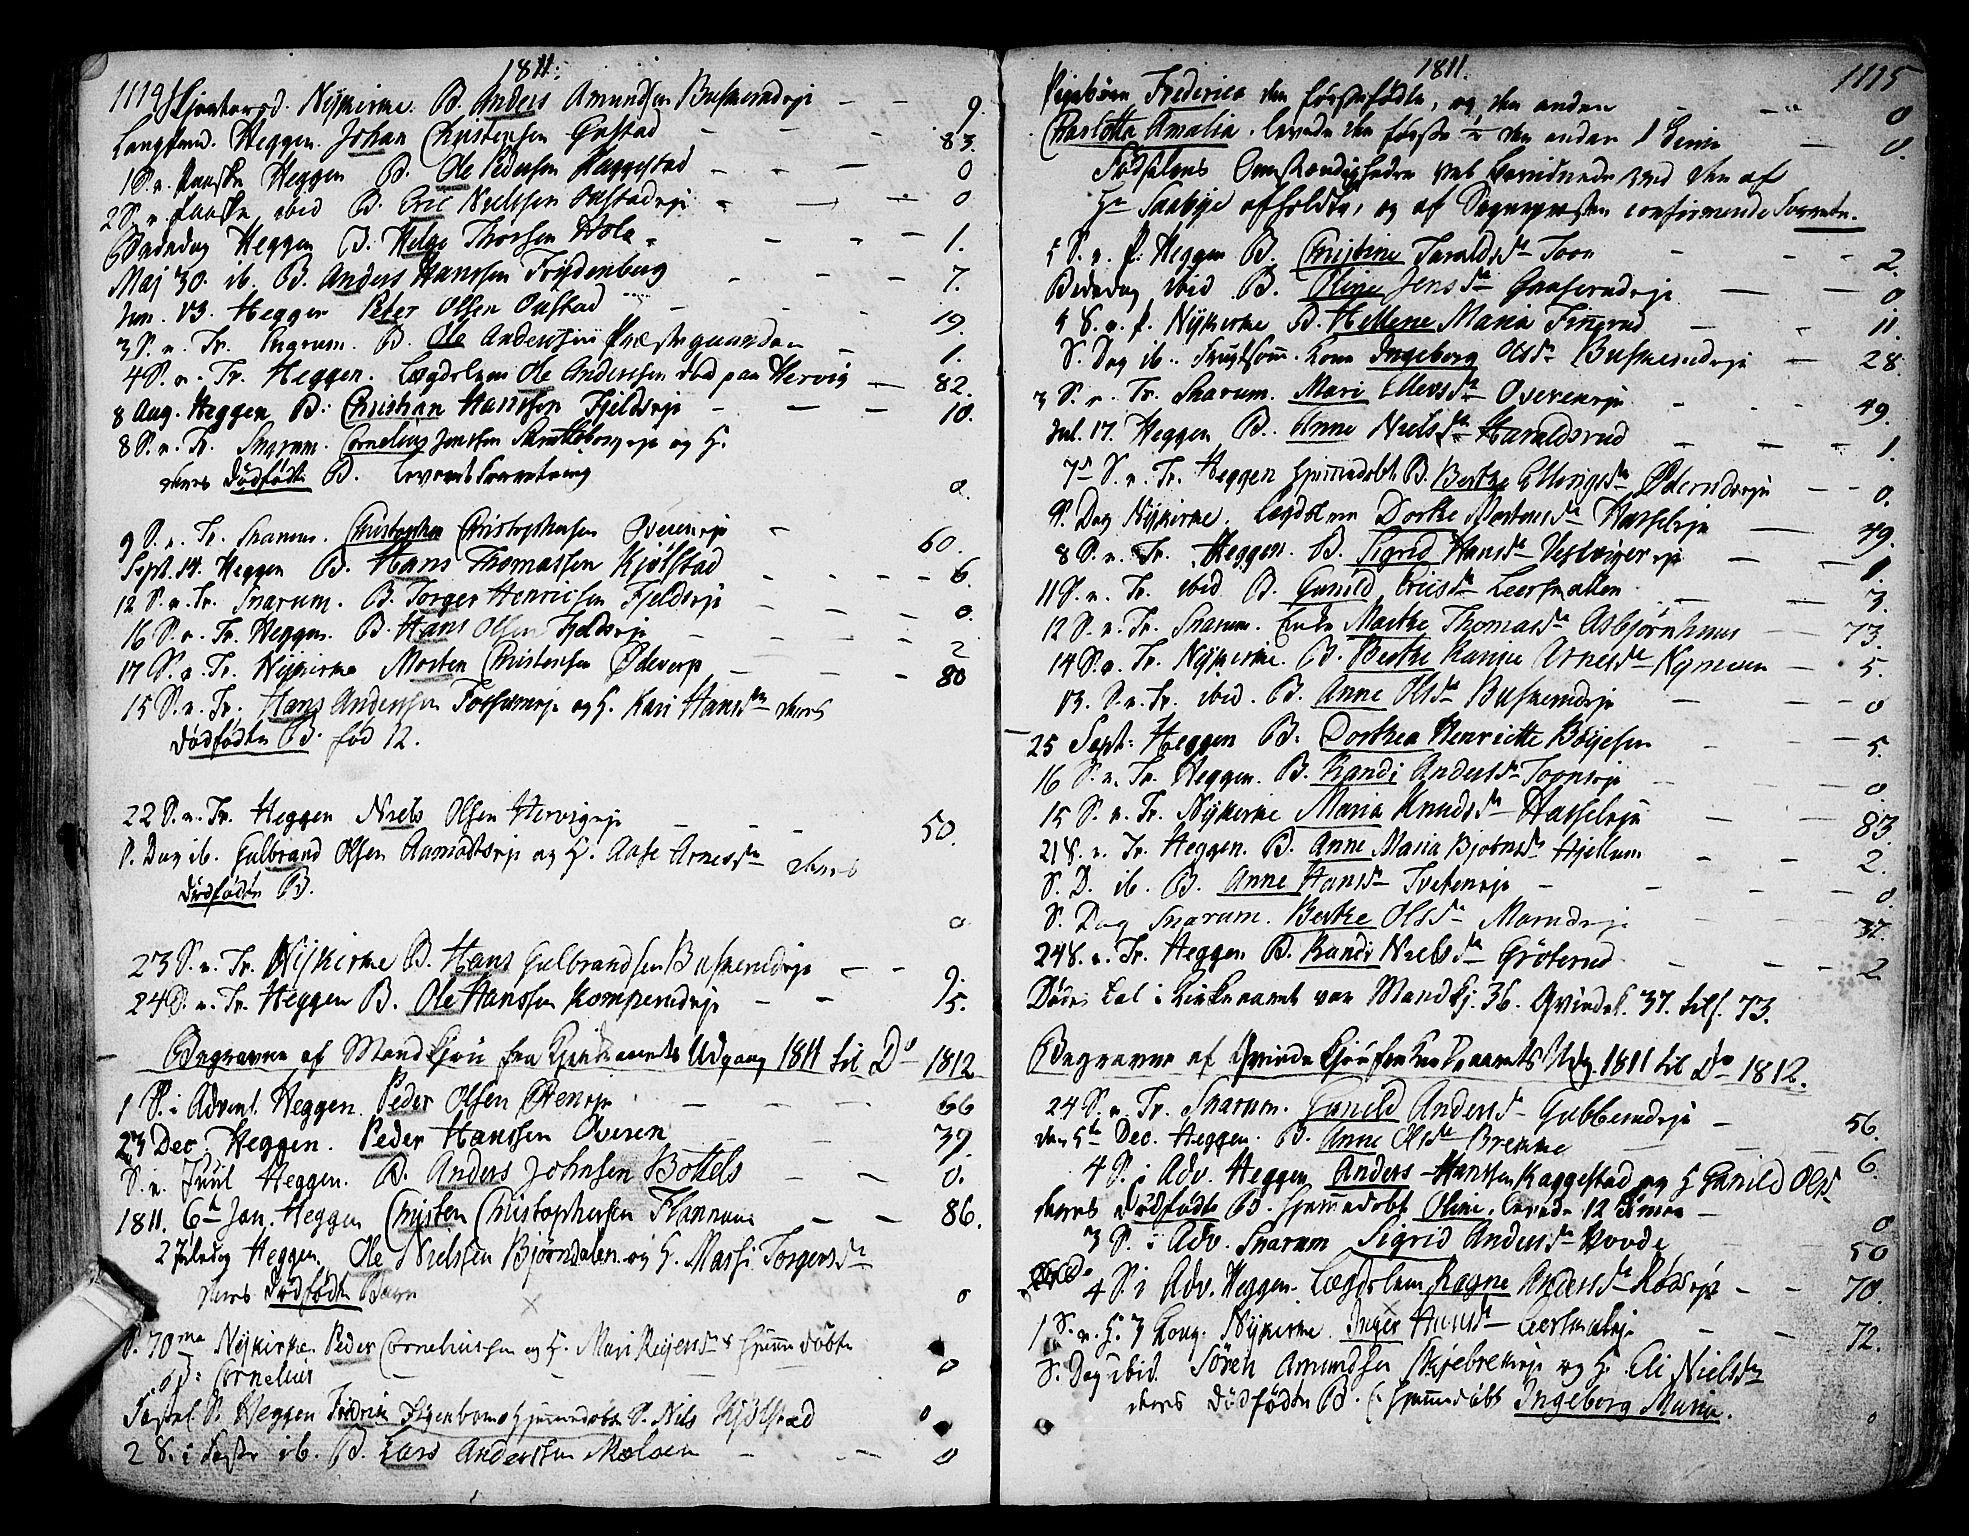 1811.
1114 Nÿkirke B. Anders Amundsen Buskerudeje — — 9.
Langfred. Heggen. Johan Christensen Gustad — — 83.
1 S. e. Paaske Heggen B. Ole Pedersen Kaggestad — — 0
2 S. e. Paaske ibid B. Eric Nielssen Onstadeje — — 0
Bededag Heggen B. Helge Thorsen Hole — — 1.
Maj 30. ib. B. Anders Hanssen Frydenberg — — 7.
Jun. 13. Heggen Peder Olsen Onstad — 19.
3 S. e. Tr. Snarum. B. Ole Anderssen Præstegaarden — 1.
4 S. e. Tr. Heggen. Lægdslem Ole Anderssen død paa Hervig — 82.
8 Aug. Heggen B. Christian Hanssen Fjeldeje — — 10.
8 S. e. Tr. Snarum. Cornelius Jenssen eje og H.
deres dødfødte B. 0.
9 S. e. Tr. Snarum. Christopher Christophersen Overeneje — 60.
Sept. 14. Heggen B. Hans Thomassen Kjølstad — — 6.
12 S. e. Tr. Snarum. B. Torger Henrichsen Fjeldeje — — 0.
16 S. e. Tr. Heggen. B. Hans Olsen Fjeldeje — — 2
17 S. e. Tr. Nÿkirke Morten Christensen Ødeverp — — 80
15 S. e. Tr. Hans Andersen Fossumeje og H. Kari Hansdr deres
dødfødte B. fød 12.
22 S. e. Tr. Heggen Niels Olsen Hervigeje — — 50.
S. Dag ib. Gulbrand Olsen Aamodtseje og H. Aase Arnesdr deres
dødfødte B. 0
23 S. e. Tr. Nÿkirke B. Hans Gulbrandsen Buskerudeje — — 9.
24 S. e. Tr. Heggen B. Ole Hanssen Komperudeje — — 5.
Begravne af Mandkjøn fra Kirkeaarets Udgang 1811 til Do 1812
1 S. i Advent. Heggen. Peder Olsen eje — — 66
23 Dec. Heggen. Peder Hanssen Overen — — 39.
S. e. Juul Heggen. B. Anders Johnsen Bottels — — 0.
1811. 6te Jan. Heggen Christen Christophersen Flannum — — 86.
2 Juledag Heggen. Ole Nielssen Bjørndalen og H. Massi Torgersdr
deres dødfødte Barn 0
S. 70ma Nÿkirken Peder Corneliussen og H. Mari Reyersdr hjemmedøbte
B: Cornelius — 0
Fastel. S. Heggen Fredrich hjemmedøbt S. Nils Kjølstad 0
2 S. i Faste ib. B. Lars Anderssen Moloen — — 0
1811. 1115
Frederica den førstefødte, og den anden — 0
Charlotta Amalia. levede den første ½ den anden 1 Time — 0.
Fødselens Omstændigheder ved den af
Hr Saabye afholdte, og af Sognepræsten
5 S. e. P. Heggen B. Christine Taraldsdr Toon — — 2.
Bededag ibid B. Oline Jensdr Gaaserudeje — — 0
4 S. e. P. Nÿkirke B. Hellene Maria Fingrud — 11.
S. Dag ib. Kone Ingeborg Olsdr Buskerudeje — 28.
3 S. e. Tr. Snarum. Mari Ellevsdr Overeneje — 49.
Jul. 17. Heggen B. Anne Nielsdr Haraldsrud — — 1.
7de S. e. Tr. Heggen hjemmedøbt B. Berthe Ellingsdr Øderudseje — 0.
S. Dag Nÿkirke. Lægdslem Dorthe Mortensdr Hasseleje — 49.
8 S. e. Tr. Heggen. B. Sigrid Hansdr Vestvigereje — — 1.
11 S. e. Tr. ibid B. Gunild Ericsdr Leersmatten — — 3.
12 S. e. Tr. Snarum. Enke Marthe Thomasdr Asbjørnhuus — 73.
14 S. e. Tr. Nÿkirke. B. Berthe Karine Arnesdr Nymoen — 5.
13. S. e. Tr. ibid. B. Anne Olsdr Buskerudeje — — 0
25 Sept: Heggen B. Dorthea Henriette Böyesen — 5.
16 S. e. Tr. Heggen. B. Randi Andersdr Toonseje — 0.
15 S. e. Tr. Nÿkirke Maria Knudsdr Hasseleje — — 83.
21 S. e. Tr. Heggen. B. Anne Maria Bjørnsdr Hjellum — — 2.
S. D. ib. B. Anne Hansdr Tveteneje — — 0.
S. Dag Snarum. Berthe Olsdr Morudeje — — 37.
24 S. e. Tr. Heggen B. Randi Nielsdr Gröterud — — 2
Dødes Tal i Kirkeaaret var Mandkj. 36. Qvindek. 37. tils. 73.
Begravne af Qvindekjøn fra Kirkeaarets Udg. 1811 til Do 1812.
24 S. e. Tr. Snarum. Gunild Andersdr Gubberudeje — 56.
den 5te Dec. Heggen. B. Anne Olsdr Brekke — 6.
4 S. i Adv. Heggen Anders Hanssen Kaggestad og H Gunild Olsdr
deres dødfødte B. hjemmedøbt Oline, levede 12 Timer — 0
3 S. i Adv. Snarum Sigrid Andersdr Hovde — 50
4 S. i Adv. Heggen. Lægdslem Ragne Andersdr Røedseje — — 70.
1 S. e. H. 3 Kong. Nÿkirke. Inger Hansdr Leersmaleje — — 72.
S. Dag ibid. Søren Amundsen Skjebrekeje og H. Eli Nielsdr
deres dødfødte B. hjemmedøbt Ingeborg Maria. 0